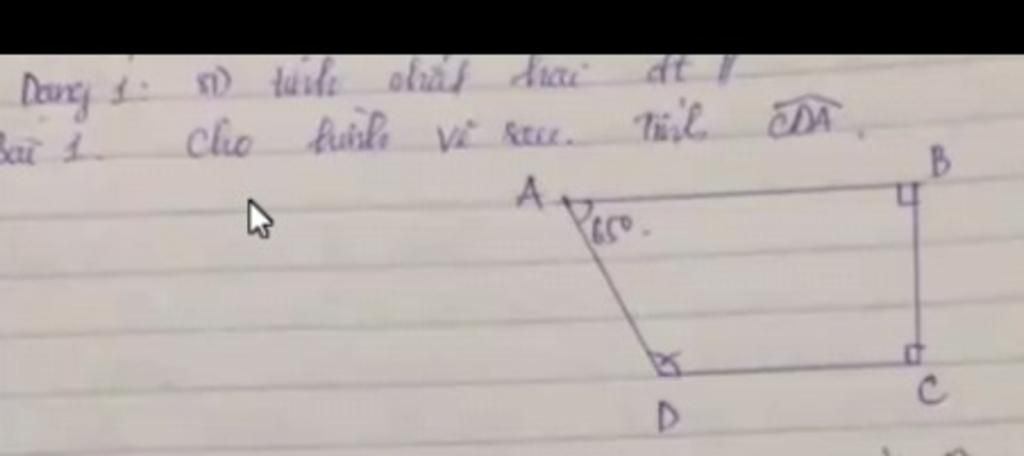 Dạng 1: SD tính chất hai đt //
Bài 1. Cho hình vẽ sau. Tính CDA.
A
B
65°.
D
C